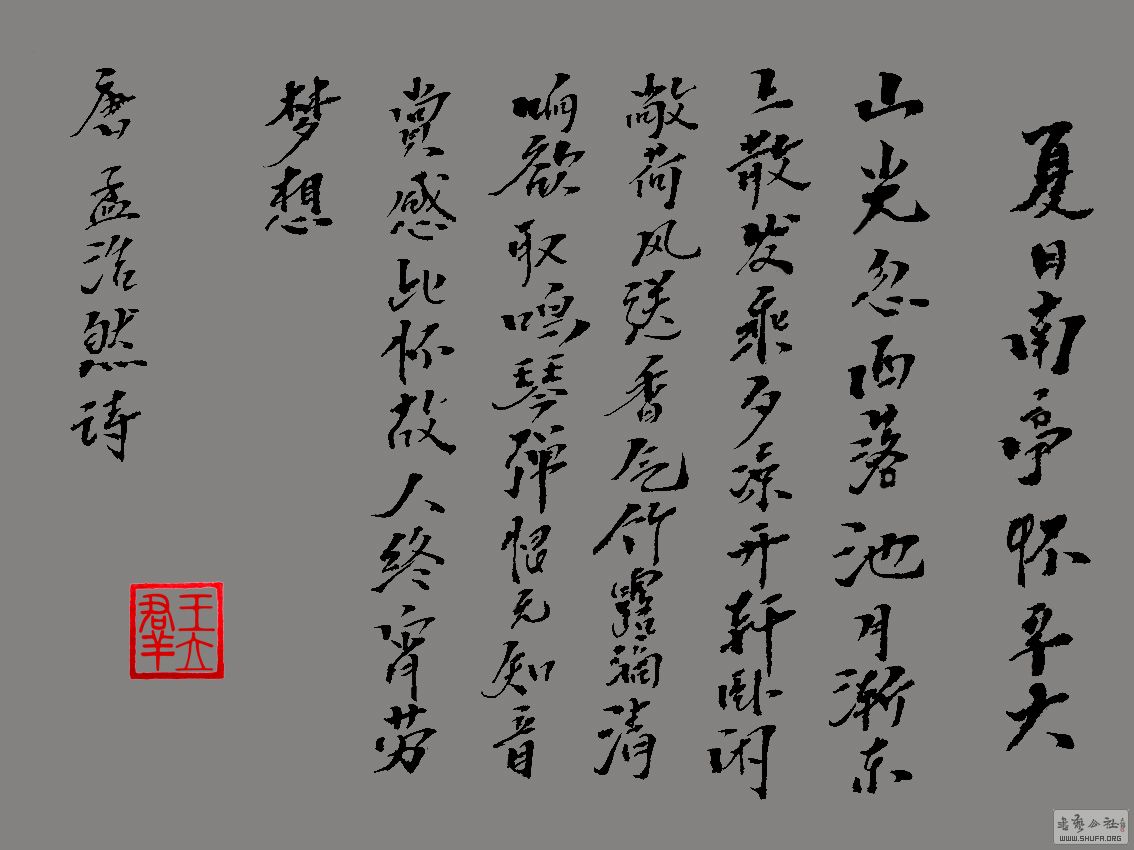 夏日南亭怀辛大
山光忽西落池月渐东
上散发乘夕凉开轩卧闲
敞荷风送香气竹露滴清
响欲取鸣琴弹恨无知音
赏感此怀故人终宵劳
梦想
唐孟浩然诗
王立君羊
书艺公社
WWW.SHUFA.ORG